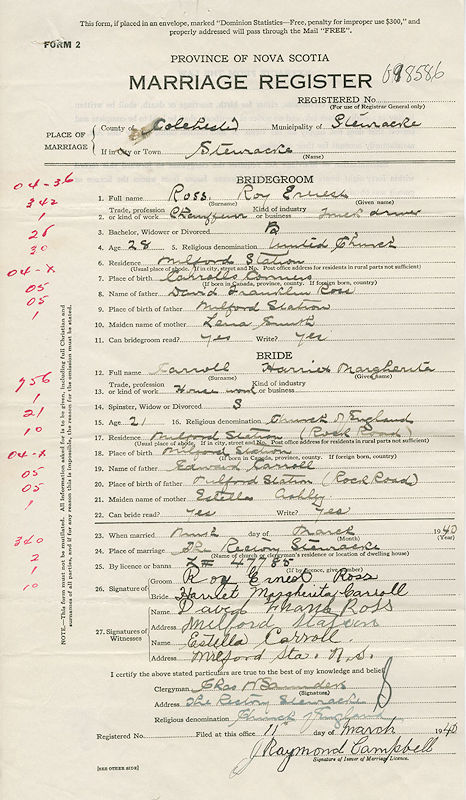 This form, if placed in an envelope, marked "Dominion Statistics—Free, penalty for improper use $300," and
properly addressed will pass through the Mail "FREE".
FORM 2
PROVINCE OF NOVA SCOTIA
MARRIAGE REGISTER
REGISTERED No. 098586
(For use of Registrar General only)
PLACE OF MARRIAGE
County of Colchester Municipality of Stewiacke
If in City or Town Stewiacke
(Name)
BRIDEGROOM
1. Full name Ross Roy Ernest
(Surname) (Given name)
2. Trade, profession or kind of work Chauffeur Kind of industry or business Truck driver
3. Bachelor, Widower or Divorced B
4. Age 28 5. Religious denomination United Church
6. Residence Milford Station
(Usual place of abode. If in city, street and No. Post office address for residents in rural parts not sufficient)
7. Place of birth Carrolls Corners
(If born in Canada, province, county. If foreign born, country)
8. Name of father David Franklin Ross
9. Place of birth of father Milford Station
10. Maiden name of mother Lena Smith
11. Can bridegroom read? Yes Write? Yes
BRIDE
12. Full name Carroll Harriet Margherita
(Surname) (Given name)
13. Trade, profession or kind of work House work Kind of industry or business
14. Spinster, Widow or Divorced S
15. Age 21 16. Religious denomination Church of England
17. Residence Milford Station (Rock Road)
(Usual place of abode. If in city, street and No. Post office address for residents in rural parts not sufficient)
18. Place of birth Milford Station
(If born in Canada, province, county. If foreign born, country)
19. Name of father Edward Carroll
20. Place of birth of father Milford Station (Rock Road)
21. Maiden name of mother Estella Ashley
22. Can bride read? Yes Write? Yes
23. When married Ninth day of March 1940
(Month) (Year)
24. Place of marriage The Rectory Stewiacke
(Name of church or clergyman's residence or location of dwelling house)
25. By licence or banns L# 4785
(If by licence, give number)
26. Signature of Groom Roy Ernest Ross
Bride Harriet Margherita Carroll
27. Signatures of Witnesses
Name David Frank Ross
Address Milford Station
Name Estella Carroll
Address Milford Sta. N.S.
I certify the above stated particulars are true to the best of my knowledge and belief.
Clergyman Chas W Saunders
(Signature)
Address The Rectory Stewiacke
Religious denomination Church of England
Registered No. Filed at this office 11 day of March 1940
J Raymond Campbell
Signature of Issuer of Marriage Licence.
[SEE OTHER SIDE]
NOTE.—This form must not be mutilated. All information asked for is to be given, including full Christian and
surnames of all parties, and if for any reason this is impossible, the reason for the omission must be stated.
04-36
342
1
28
30
04-X
05
05
1
956
1
21
10
04-X
05
05
1
340
2
1
10